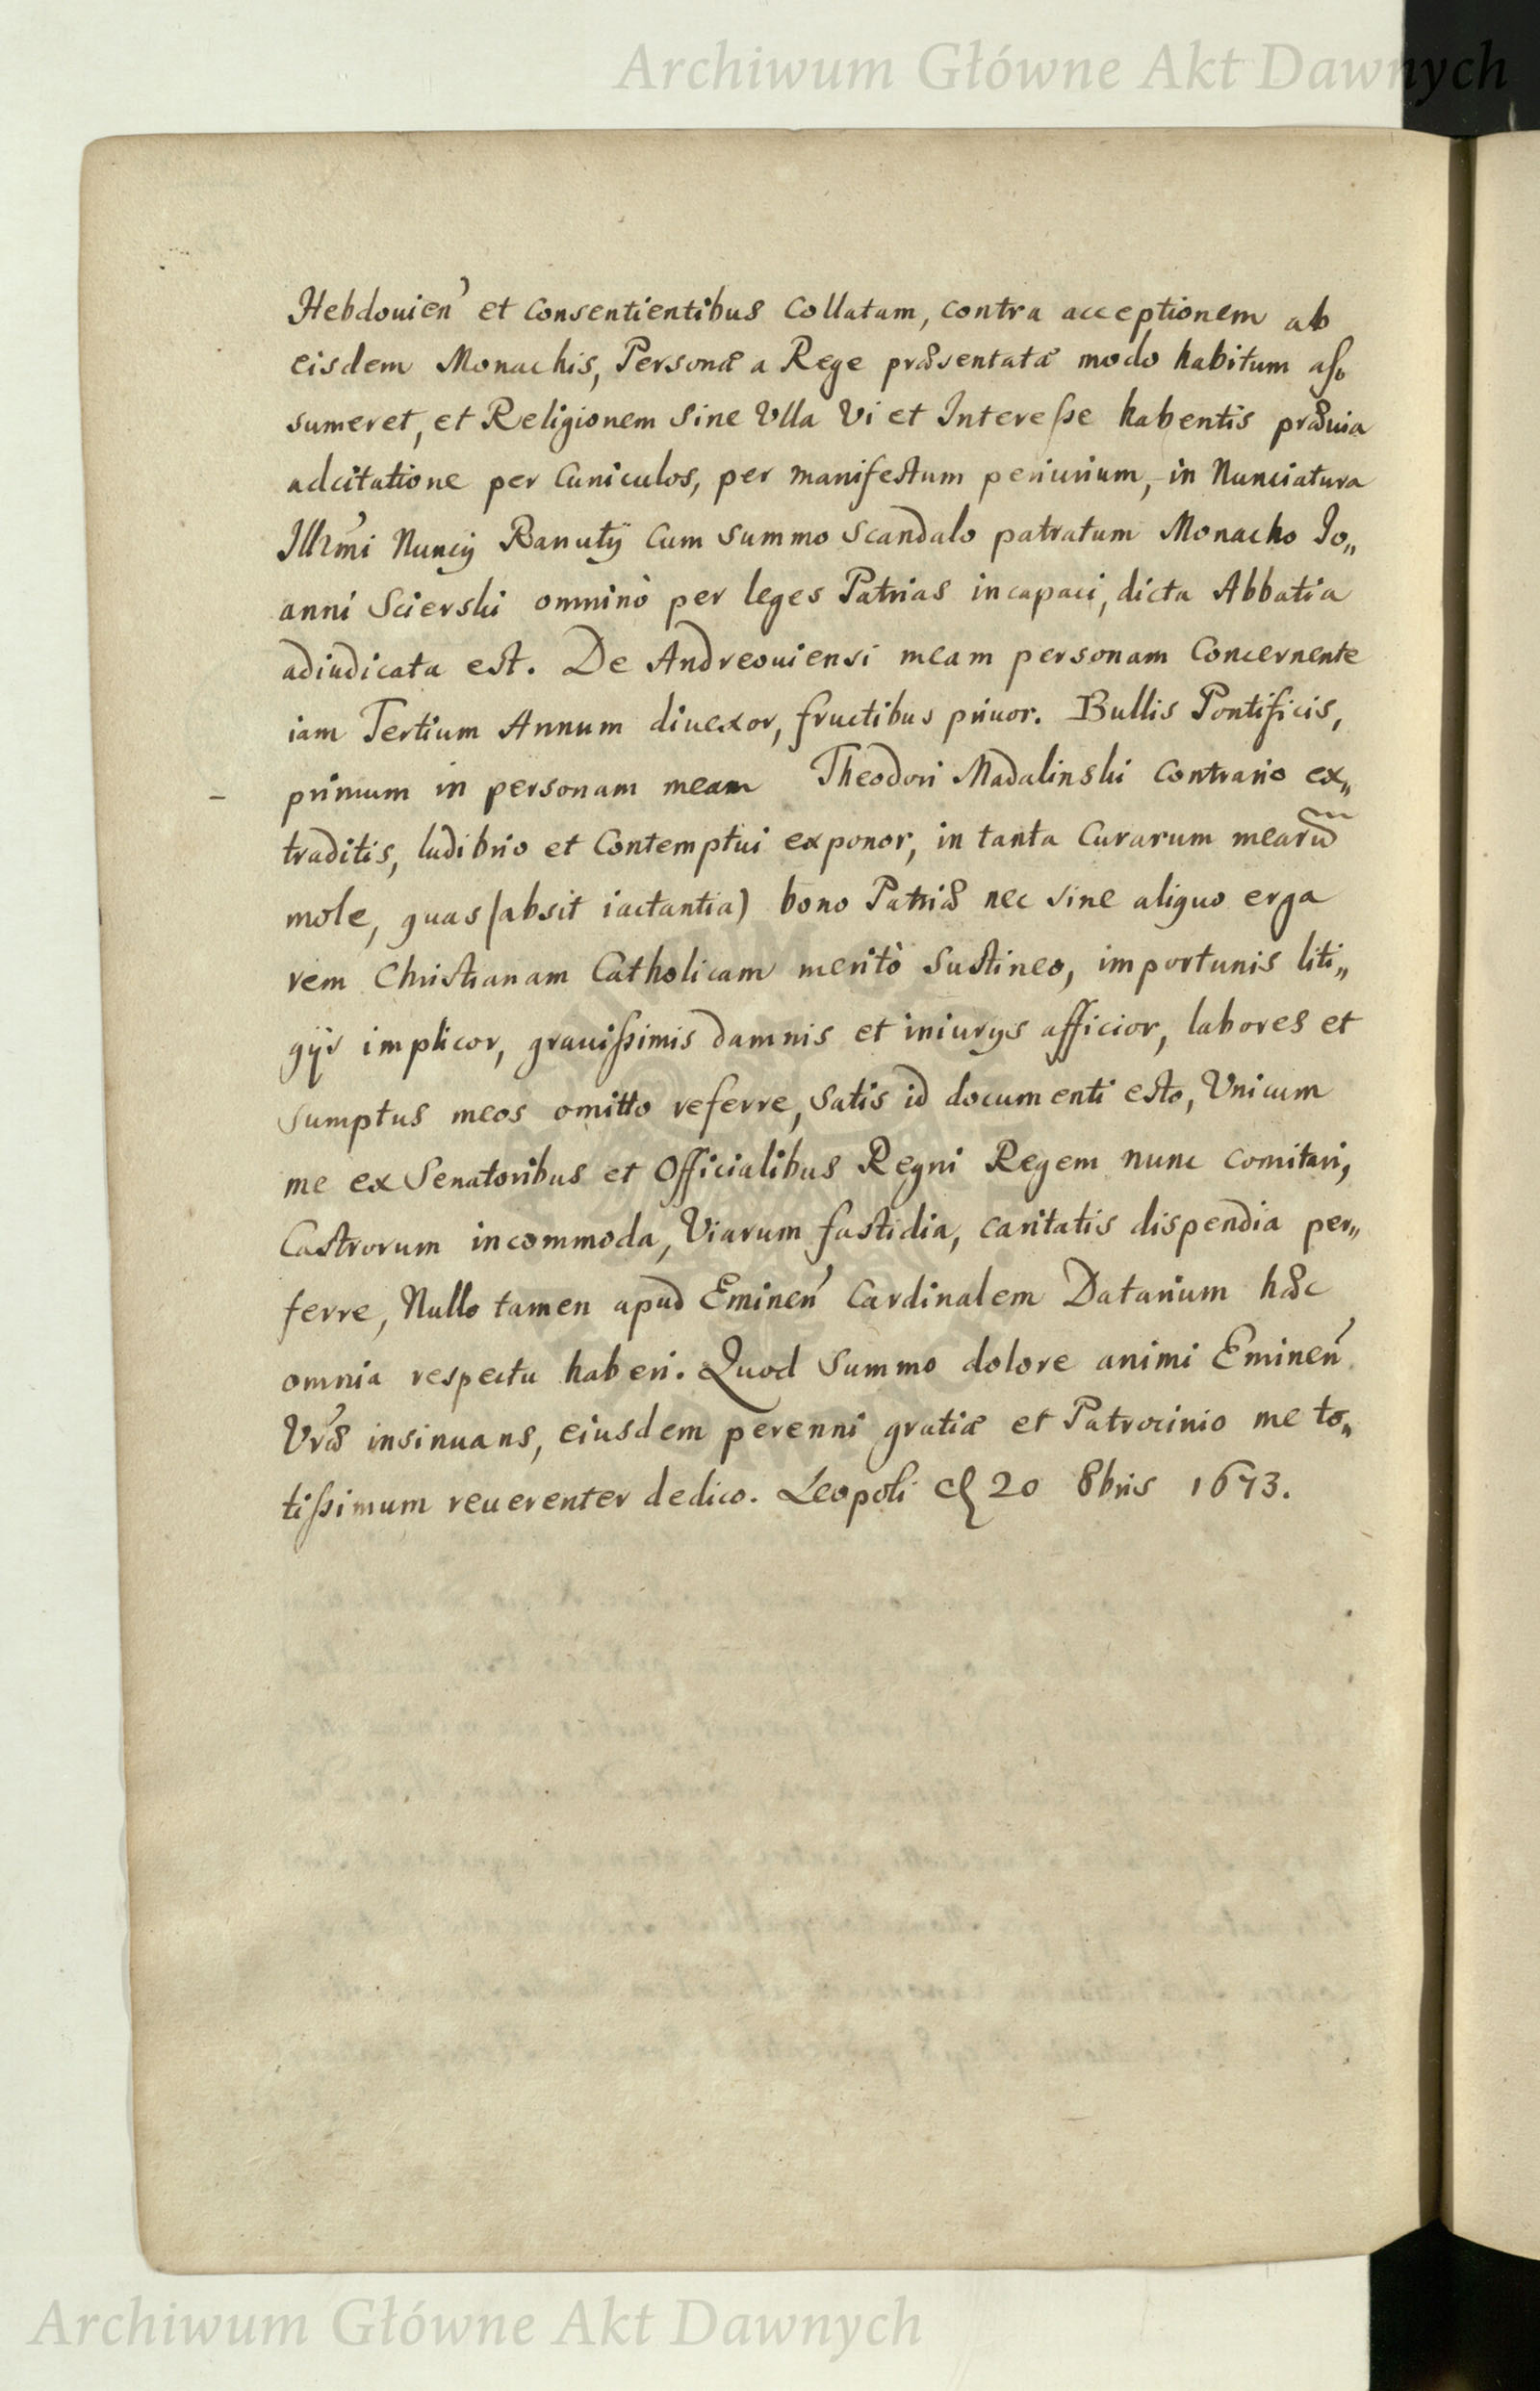 Archiwum Główne Akt Dawnych
Hebdouien' et Consentientibus Collatam, contra acceptionem ab
eisdem Monachis, Personæ a Rege præsentatæ modo habitum as-
sumeret, et Religionem sine Vlla Vi et Interesse habentis præuia
adcitatione per Cuniculos, per manifestum periurium, in Nunciatura
Illr̃mi Nuncij Ranutij cum summo scandalo patratum Monacho Jo„
anni Scierski omninò per leges Patrias incapaci, dicta Abbatia
adiudicata est. De Andreouiensi meam personam Concernente
iam Tertium Annum diuexor, fructibus priuor. Bullis Pontificis,
primum in personam meam Theodori Madalinski Contrario ex„
traditis, ludibrio et Contemptui exponor, in tanta Curarum mearum
mole, quas (absit iactantia) bono Patriæ nec sine aliquo erga
rem Christianam Catholicam meritò Sustineo, importunis liti„
gijs implicor, grauissimis damnis et iniurys afficior, labores et
sumptus meos omitto referre, Satis id documenti esto, Vnicum
me ex Senatoribus et Officialibus Regni Regem nunc comitari,
Castrorum incommoda, Viarum fastidia, caritatis dispendia per„
ferre, Nullo tamen apud Eminen' Cardinalem Datarium hæc
omnia respectu haberi. Quod Summo dolore animi Eminen'
Vræ' insinuans, eiusdem perenni gratiæ et Patrocinio me to„
tissimum reuerenter dedico. Leopoli 20 8bris 1673.
Archiwum Główne Akt Dawnych